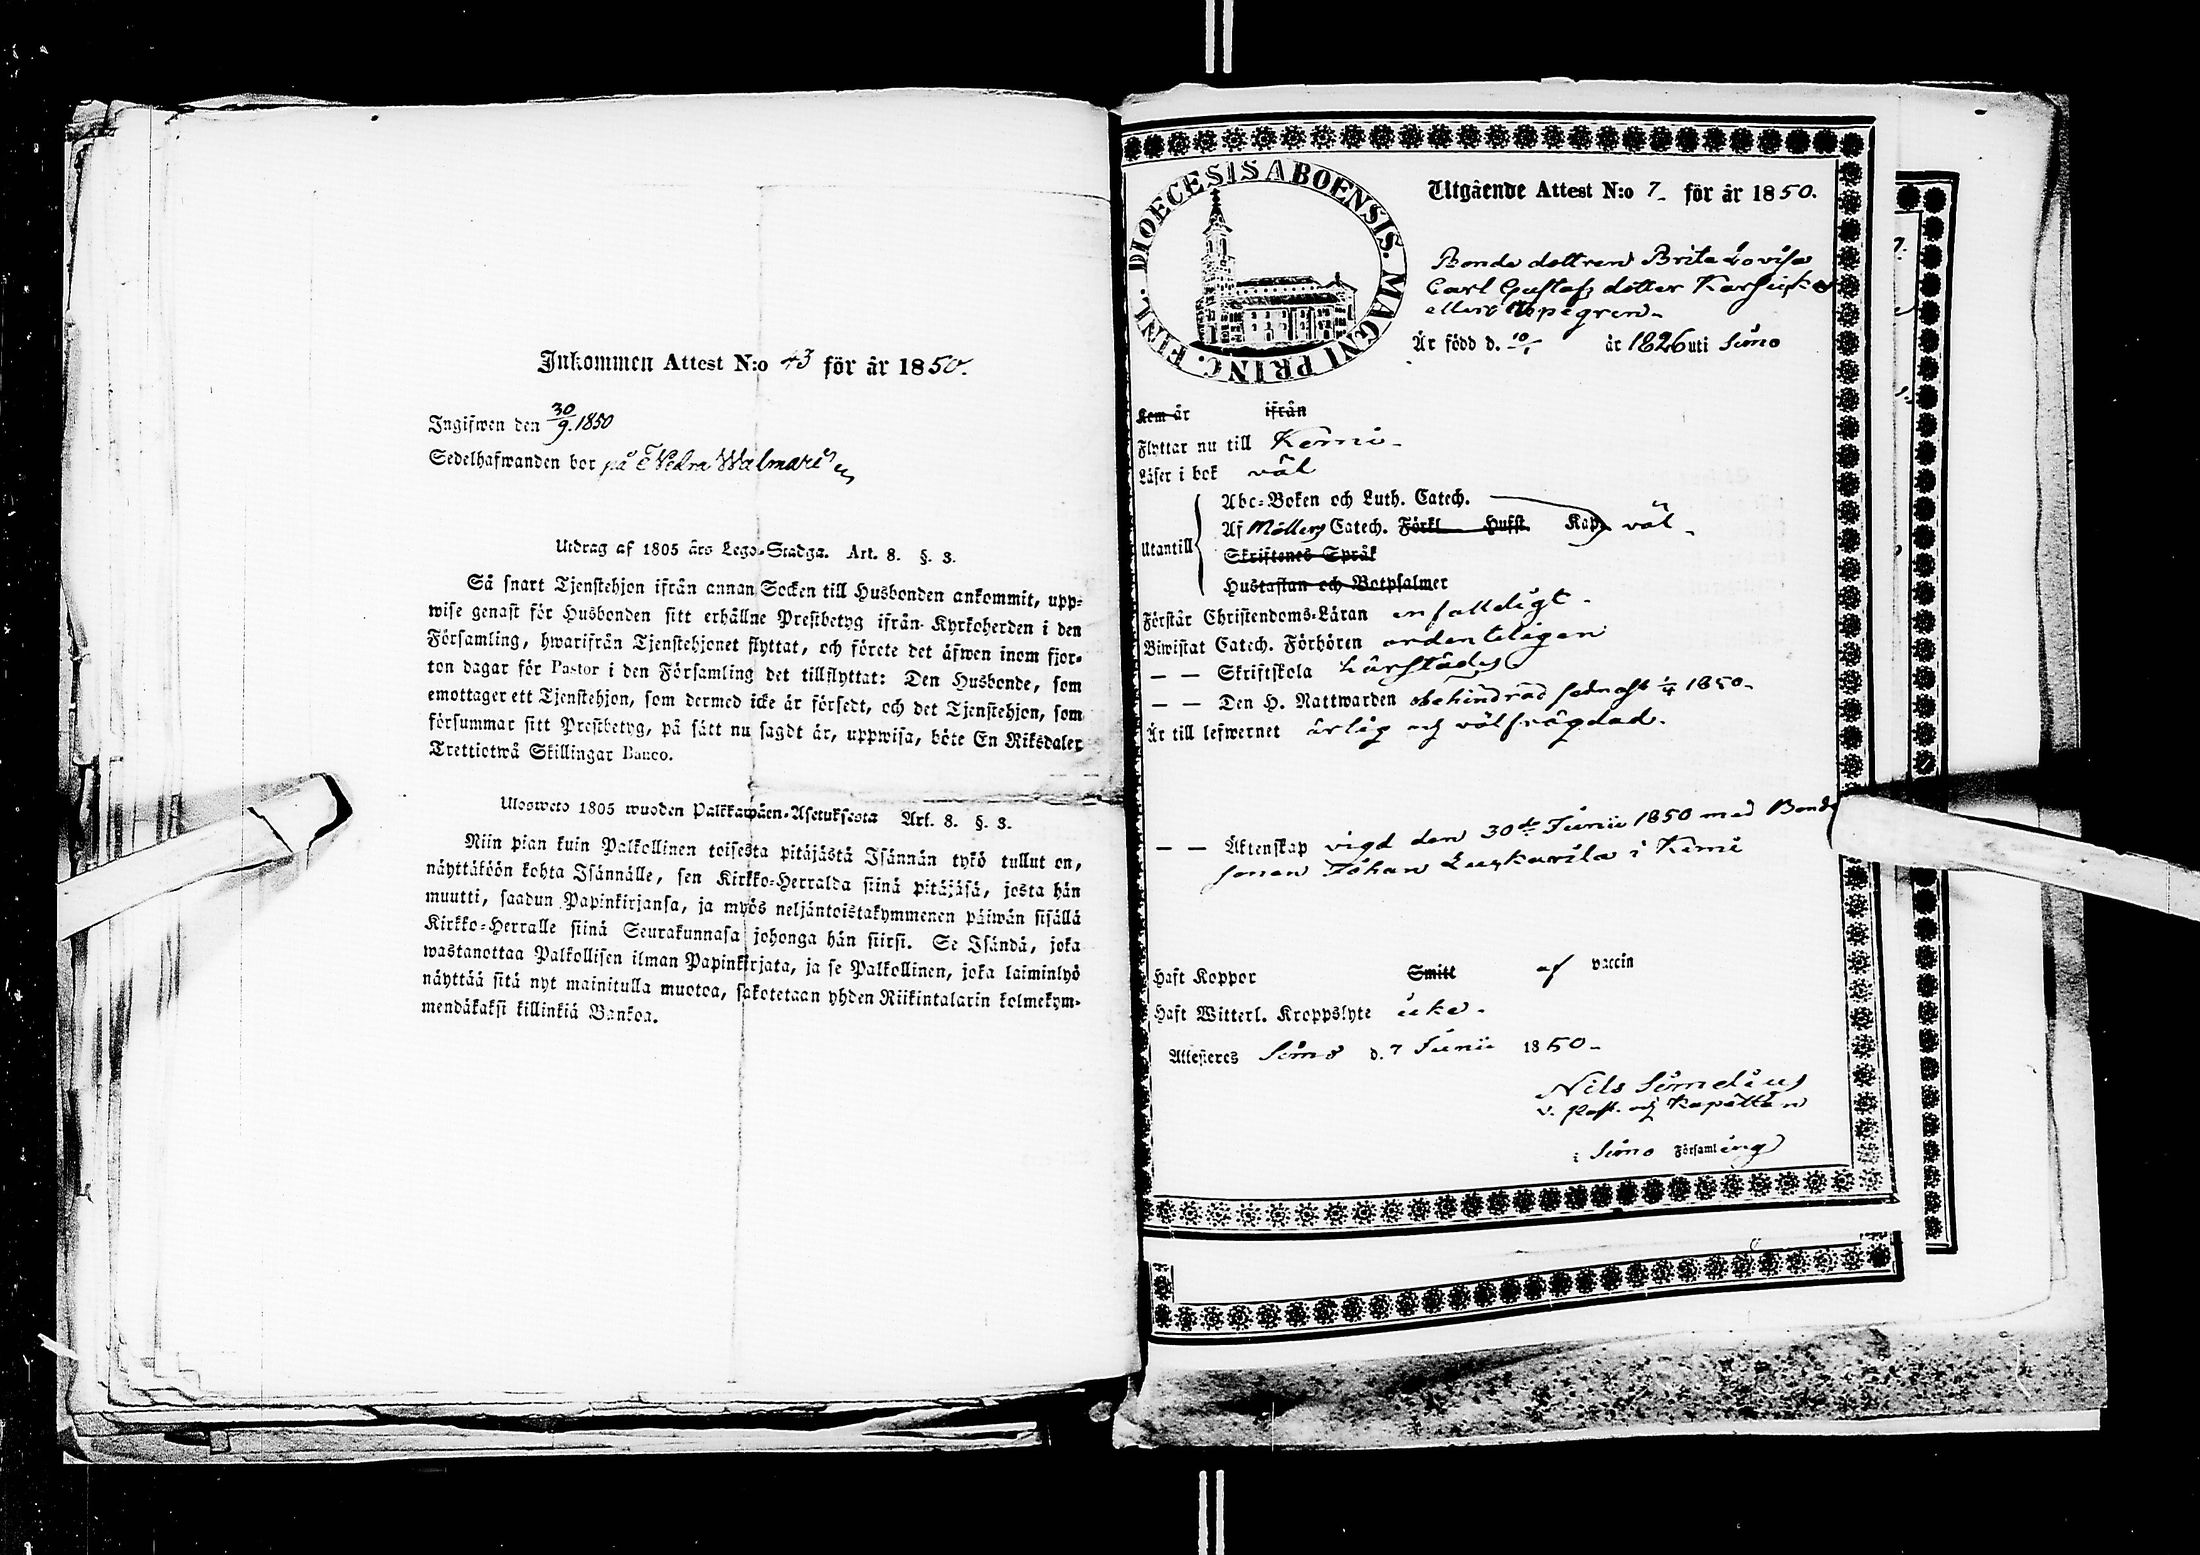 Inkommen Attest N:o 43 för år 1850.
Ingifwen den 30/9. 1850
Sedelhafwanden bor på Nedra Walmari
Utdrag af 1805 års Lego-Stadga. Art. 8. §. 3.
Så snart Tjenstehjon ifrån annan Socken till Husbonden ankommit, upp-
wise genast för Husbonden sitt erhållne Prestbetyg ifrån Kyrkoherden i den
Församling, hwarifrån Tjenstehjonet flyttat, och förete det äfwen inom fjor-
ton dagar för Pastor i den Församling det tillflyttat: Den Husbonde, som
emottager ett Tjenstehjon, som dermed icke är försedt, och det Tjenstehjon, som
försummar sitt Prestbetyg, på sätt nu sagdt är, uppwisa, böte En Riksdaler
Trettiotwå Skillingar Banco.
Ulosweto 1805 wuoden Palkkawäen-Asetuksesta Art. 8. §. 3.
Niin pian kuin Palkollinen toisesta pitäjästä Isännän tykö tullut on,
näyttäköön kohta Isännälle, sen Kirkko-Herralda siinä pitäjäsä, josta hän
muutti, saadun Papinkirjansa, ja myös neljäntoistakymmenen päiwän sisällä
Kirkko-Herralle siinä Seurakunnasa johonga hän siirsi. Se Isändä, joka
wastanottaa Palkollisen ilman Papinkirjata, ja se Palkollinen, joka laiminlyö
näyttää sitä nyt mainitulla muotoa, sakotetaan yhden Riikintalarin kolmekym-
mendäkaksi killinkiä Bankoa.
DIOECESIS ABOENSIS. MAGNI PRINC. FINL.
Utgående Attest N:o 7 för år 1850.
Bonde dottren Brita Lovisa
Carl Gustafs dotter Karsikko
ellers Uppegren
Är född d. 10/1 år 1826 uti Simo
Kom år ifrån
Flyttar nu till Kemi
Läser i bok väl
Utantill
Abc-Boken och Luth. Catech.
Af Möllers Catech. Förkl. Husst. Kap. väl
Skriftenes Språk
Hustaflan och Botpsalmer
Förstår Christendoms-Läran enfalldigt
Biwistat Catech. Förhören ordenteligen
— — Skriftskola Lärstådes
— — Den H. Nattwarden obehindrad sednast 1/4 1850
Är till lefwernet ärlig och välfrägdad.
— — Äktenskap vigd den 30de Junii 1850 med Bonde
sonen Johan Luskarila i Kemi
Haft Koppor Smitt af vaccin
Haft Witterl. Kroppslyte icke
Attesteres Simo d. 7 Junii 1850
Nils Simelius
v. Past. och Kapellan
i Simo Församling